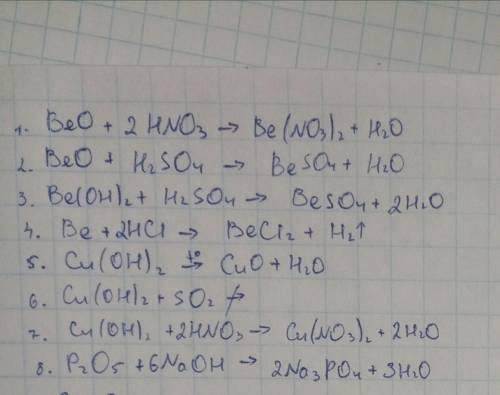 1. BeO + 2 HNO3 → Be(NO3)2 + H2O
2. BeO + H2SO4 → BeSO4 + H2O
3. Be(OH)2 + H2SO4 → BeSO4 + 2H2O
4. Be + 2HCl → BeCl2 + H2↑
5. Cu(OH)2 t°→ CuO + H2O
6. Cu(OH)2 + SO2 ↛
7. Cu(OH)2 + 2HNO3 → Cu(NO3)2 + 2H2O
8. P2O5 + 6NaOH → 2Na3PO4 + 3H2O